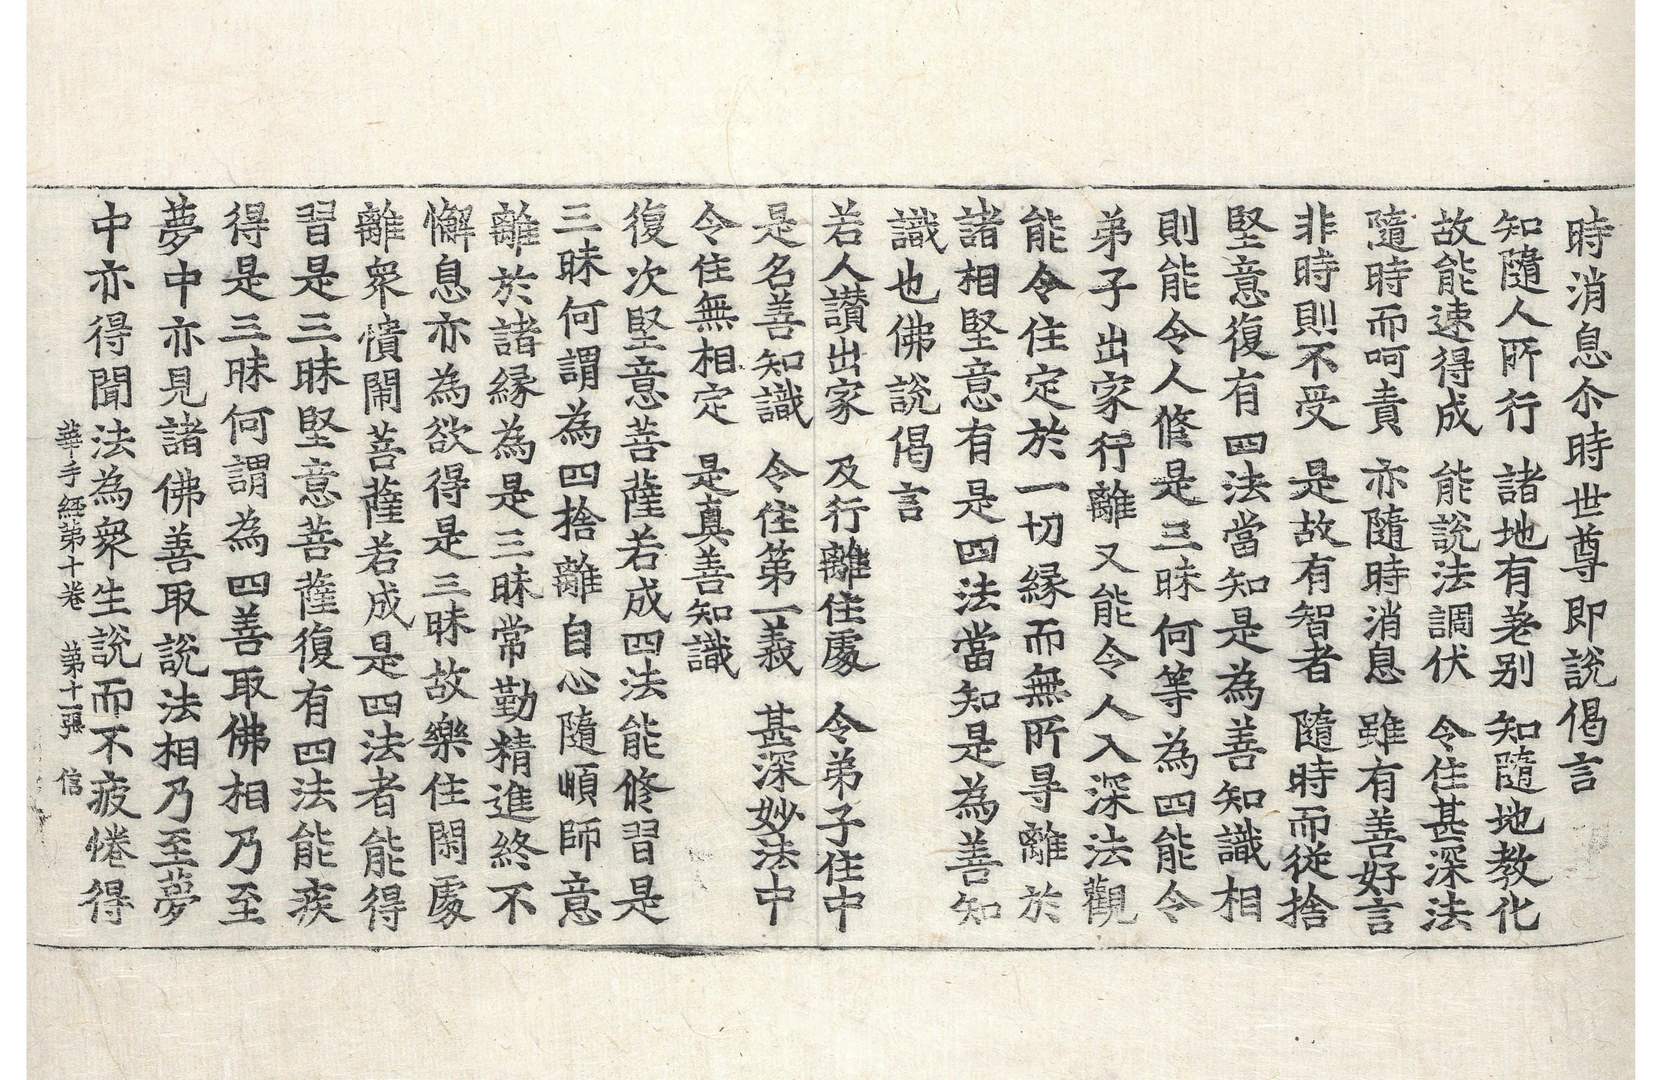 時消息尒時世尊即說偈言
知隨人所行 諸地有差別 知隨地教化
故能速得成 能說法調伏 令住甚深法
隨時而呵責 亦隨時消息 雖有善好言
非時則不受 是故有智者 隨時而從捨
堅意復有四法當知是為善知識相
則能令人脩是三昧何等為四能令
弟子出家行離又能令人入深法觀
能令住定於一切縁而無所㝵離於
諸相堅意有是四法當知是為善知
識也佛說偈言
若人讃出家 及行離住處 令弟子住中
是名善知識 令住第一義 甚深妙法中
令住無相定 是真善知識
復次堅意菩薩若成四法能修習是
三昧何謂為四捨離自心隨順師意
離於諸縁為是三昧常勤精進終不
懈息亦為欲得是三昧故樂住閑處
離衆憒閙菩薩若成是四法者能得
習是三昧堅意菩薩復有四法能疾
得是三昧何謂為四善取佛相乃至
夢中亦見諸佛善取說法相乃至夢
中亦得聞法為衆生說而不疲惓得
華手経第十卷 第十一張 信